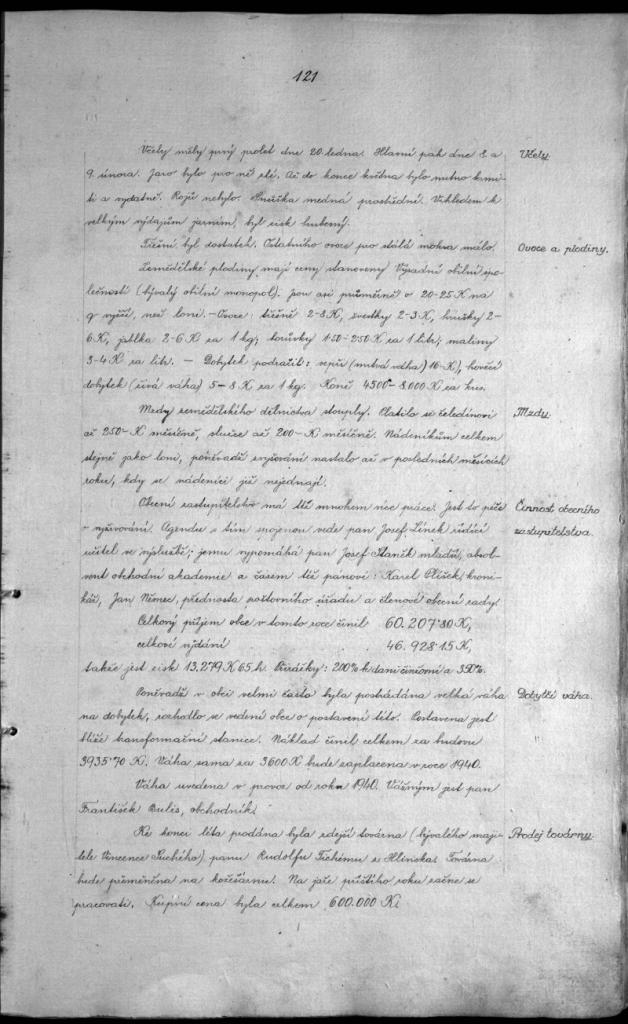 121
Včely měly prvý prolet dne 20. ledna. Hlavní pak dne 8. a
Včely.
9. února. Jaro bylo pro ně zlé. Až do konce května bylo nutno krmi-
ti a vydatně. Rojů nebylo. Snůška medná prostřední. Vzhledem k
velkým výdajům jarním, byl zisk hubený.
Třešní byl dostatek. Ostatního ovoce pro stálá mokra málo.
Ovoce a plodiny.
Zemědělské plodiny mají ceny stanoveny Výsadní obilní spo-
lečností (bývalý obilní monopol). Jsou asi průměrně o 20-25 K na
q vyšší, než loni. – Ovoce: třešně 2-3 K, švestky 2-3 K, hrušky 2-
6 K, jablka 2-6 K za 1 kg; borůvky 1·50-2·50 K za 1 litr; maliny
3-4 K za litr. – Dobytek podražil: vepři (mrtvá váha) 16-K, hovězí
dobytek (živá váha) 5-8 K za 1 kg. Koně 4500-8.000 K za kus.
Mzdy zemědělského dělnictva stouply. Platilo se čeledínovi
Mzdy.
až 250- K měsíčně, služce až 200- K měsíčně. Nádeníkům celkem
stejně jako loni, poněvadž zvyšování nastalo až v posledních měsících
roku, kdy se nádeníci již nejednají.
Obecní zastupitelstvo má též mnohem více práce. Jest to péče
Činnost obecního
o vyživování. Agendu s tím spojenou vede pan Josef Línek řídící
zastupitelstva.
učitel ve výslužbě; jemu vypomáhá pan Josef Staněk mladší, absol-
vent obchodní akademie a časem též pánové: Karel Plíšek, kroni-
kář, Jan Němec, přednosta poštovního úřadu a členové obecní rady.
Celkový příjem obce v tomto roce činil 60.207·80 K,
celkové vydání 46.928·15 K,
takže jest zisk 13.279 K 65 h. Přirážky: 200% k dani činžovní a 350%.
Poněvadž v obci velmi často byla postrádána velká váha
Dobytčí váha.
na dobytek, rozhodlo se vedení obce o postavení této. Postavena jest
blíže transformační stanice. Náklad činil celkem za budovu
3935·70 K. Váha sama za 3600 K bude zaplacena v roce 1940.
Váha uvedena v provoz od roku 1940. Vážným jest pan
František Bulis, obchodník.
Ke konci léta prodána byla zdejší továrna (bývalého maji-
Prodej továrny.
tele Vincence Suchého) panu Rudolfu Tichému z Hlinska. Továrna
bude přeměněna na kožešárnu. Na jaře příštího roku začne se
pracovati. Kupní cena byla celkem 600.000 K.